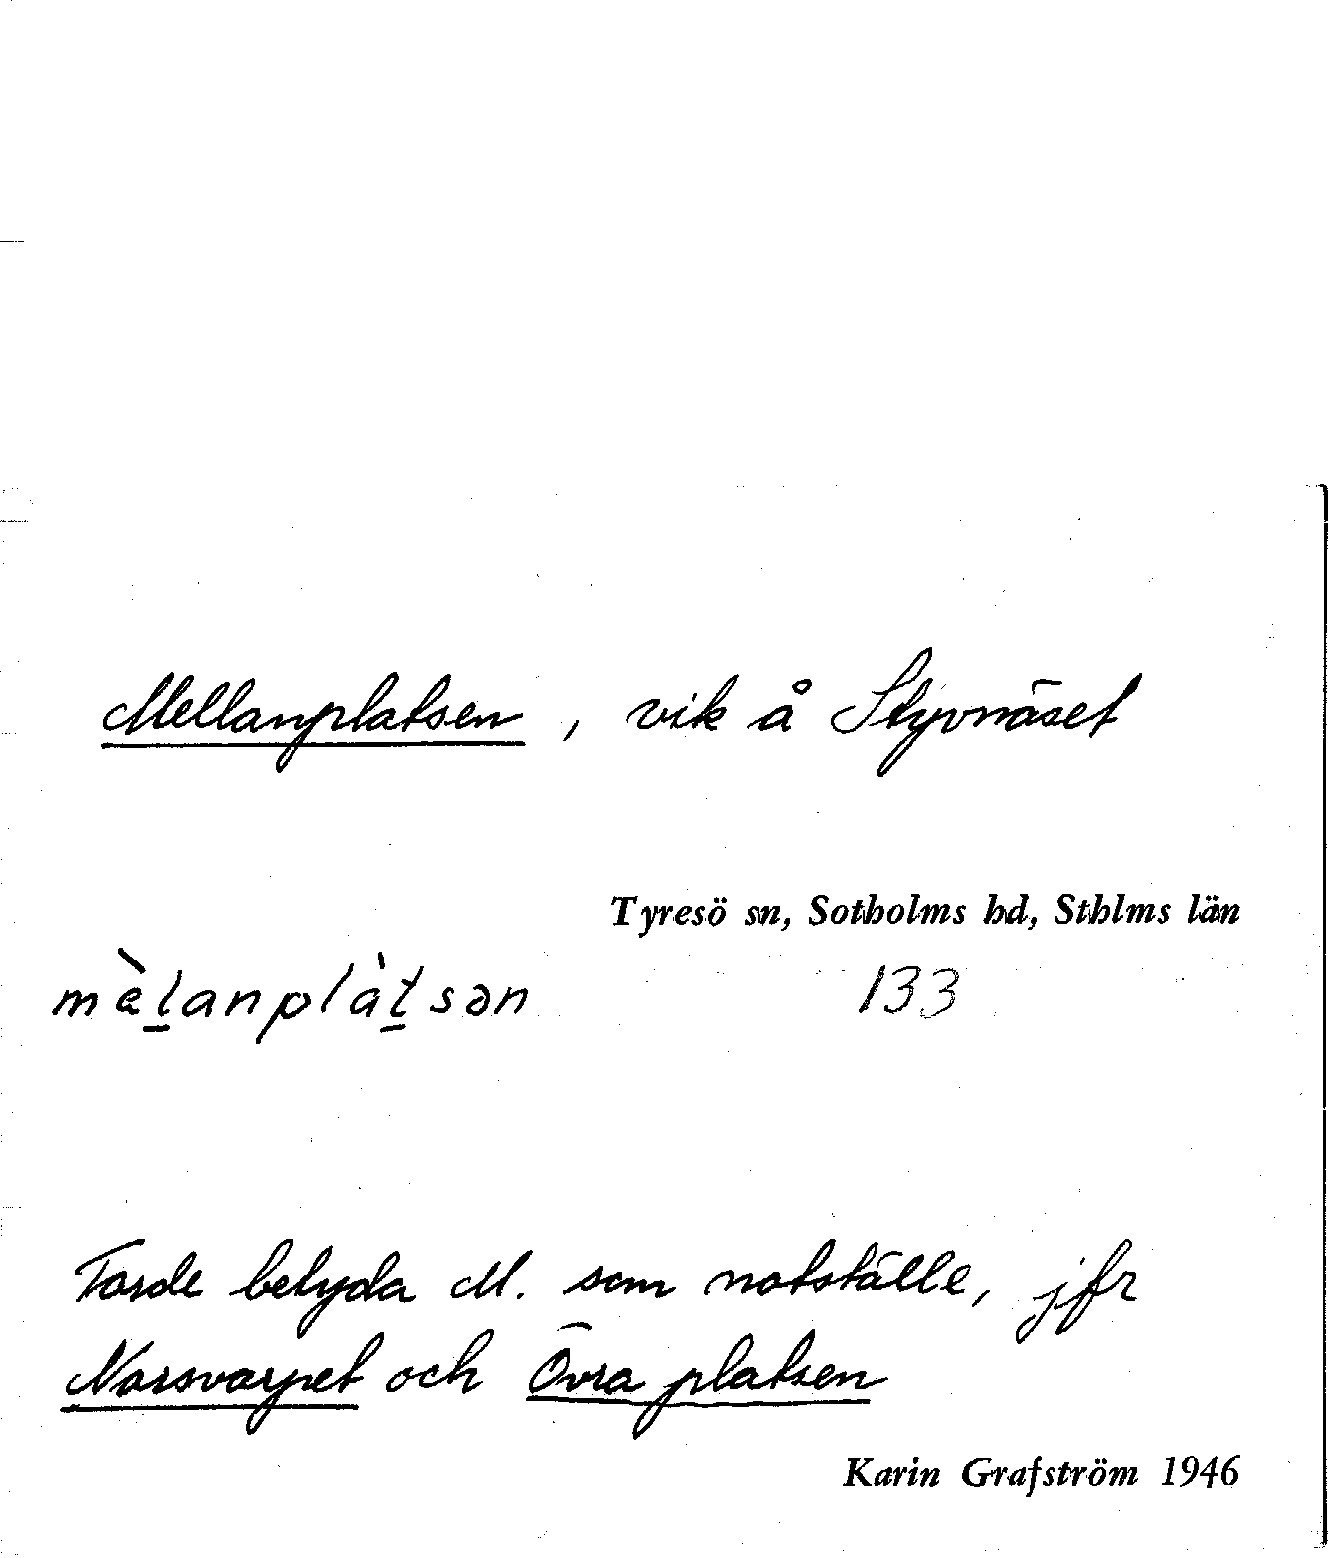 Mellanplatsen, vik å Styvnäset
Tyresö sn, Sotholms hd, Sthlms län
mèḻanplàṯsən 133
Torde betyda M. som notställe, jfr
Norsvarpet och Övra platsen
Karin Grafström 1946